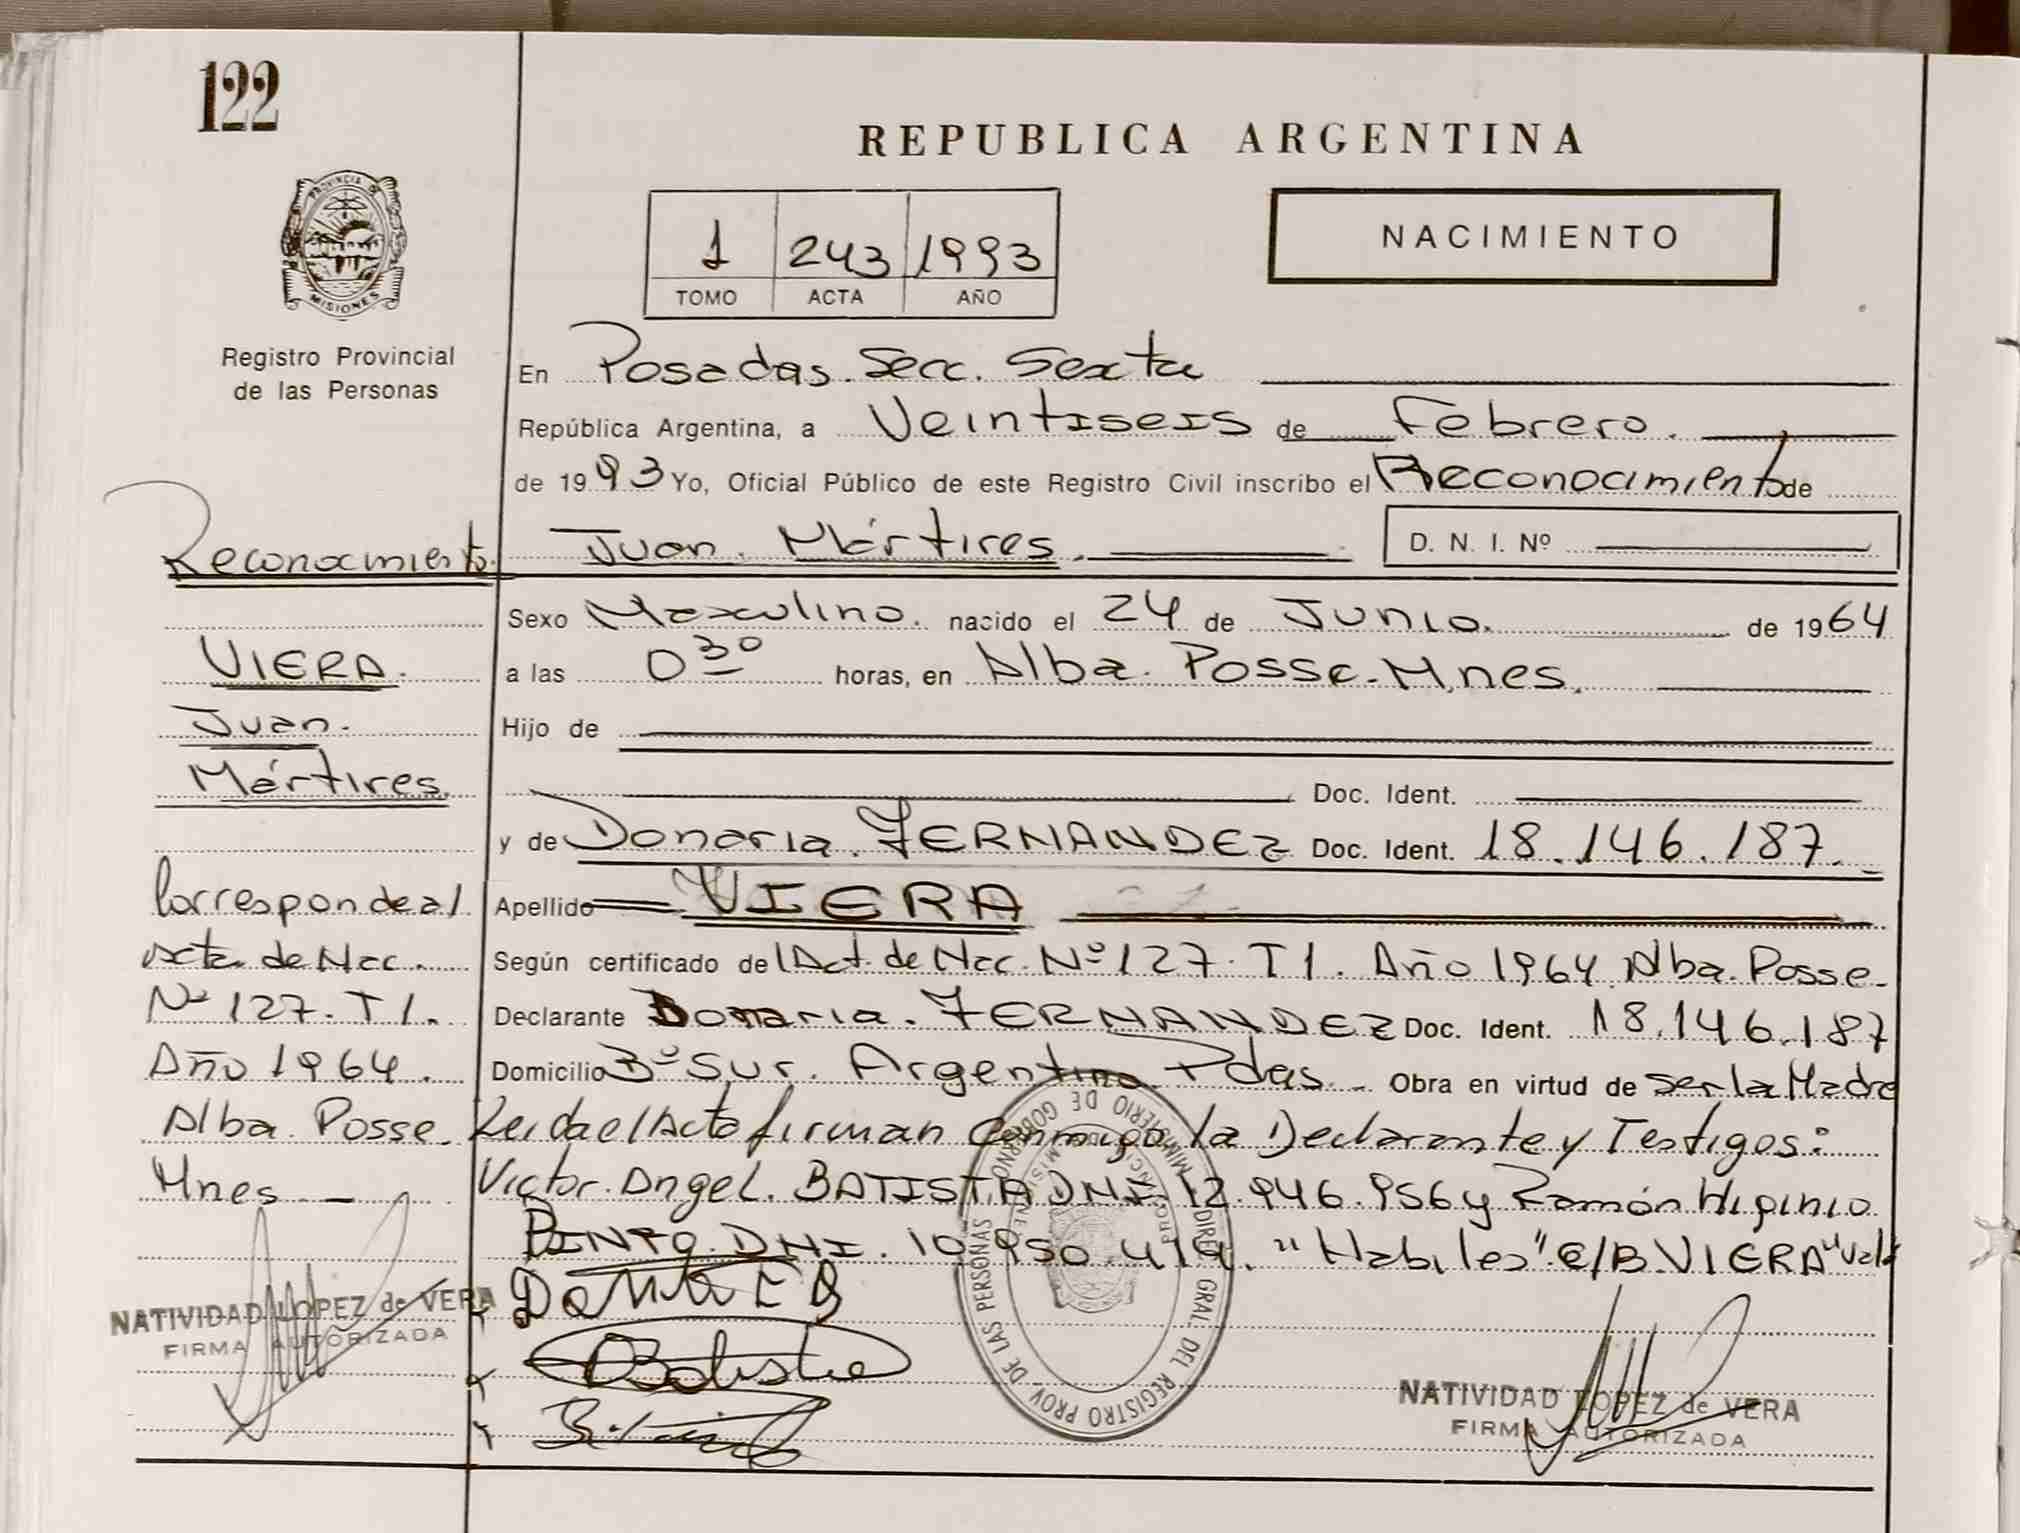 122
REPUBLICA ARGENTINA
1 243 1993
TOMO ACTA AÑO
NACIMIENTO
PROVINCIA DE
MISIONES
Registro Provincial
de las Personas
En Posadas. Secc. Sexta
República Argentina, a Veintiseis de Febrero.
de 1993 Yo, Oficial Público de este Registro Civil inscribo el Reconocimiento de
Juan. Mártires. D. N. I. Nº
Sexo Masculino. nacido el 24 de Junio. de 1964
a las 0 30 horas, en Alba. Posse. Mnes.
Hijo de
Doc. Ident.
y de Donaria. FERNANDEZ Doc. Ident. 18.146.187.
Apellido VIERA
Según certificado del Act. de Nac. Nº 127. T1. Año 1964 Alba. Posse.
Declarante Donaria. FERNANDEZ Doc. Ident. 18.146.187
Domicilio Bº Sur. Argentino. Pdas. Obra en virtud de ser la Madre
Leida el Acta firman conmigo la Declarante y Testigos:
Victor. Angel. BATISTA DNI. 12.946.956 y Ramón Higinio
PINTO. DNI. 10.950.419. "Habiles". E/B. VIERA "Vale
Reconocimiento.
VIERA.
Juan.
Mártires.
Corresponde al
acta de Nac.
Nº 127. T1.
Año 1964.
Alba. Posse.
Mnes
NATIVIDAD LOPEZ de VERA
FIRMA AUTORIZADA
Batista
MINISTERIO DE GOBIERNO
DIREC. GRAL. DEL REGISTRO PROV. DE LAS PERSONAS
NATIVIDAD LOPEZ de VERA
FIRMA AUTORIZADA